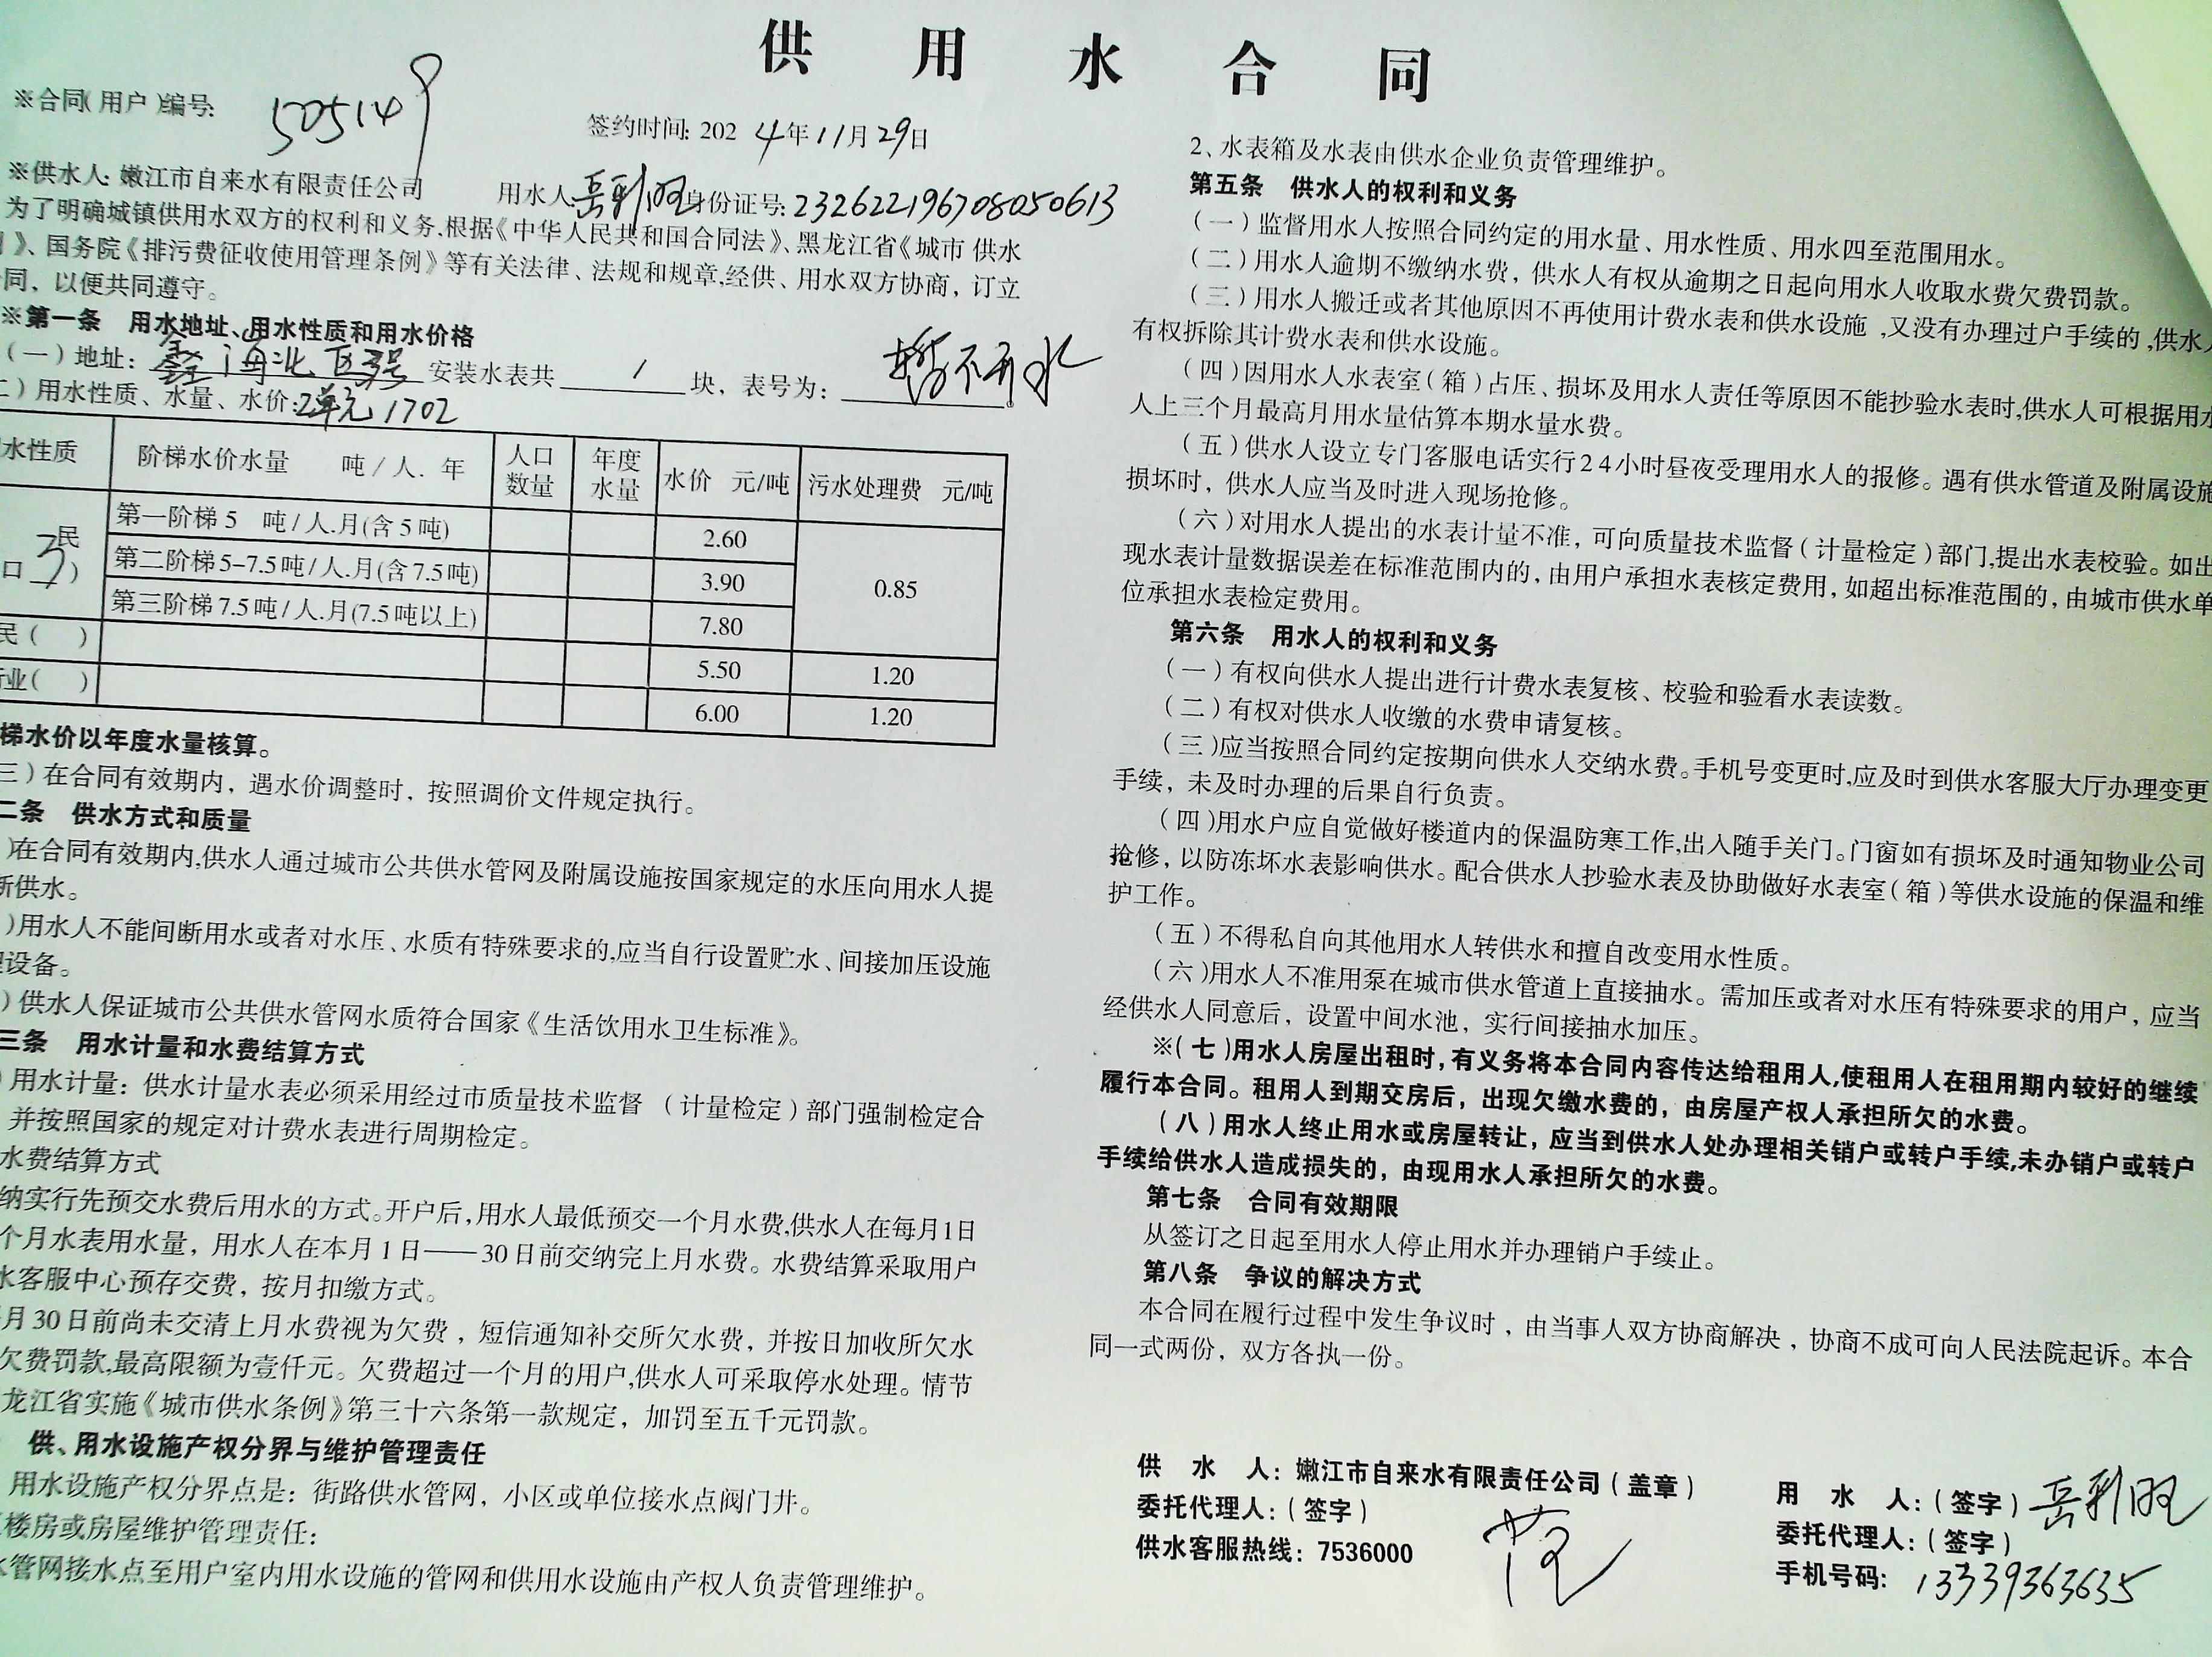 供用水合同
※合同(用户)编号: 505149
签约时间: 2024年11月29日
※供水人: 嫩江市自来水有限责任公司 用水人: 岳利旺 身份证号: 232622196708050613
为了明确城镇供用水双方的权利和义务,根据《中华人民共和国合同法》、黑龙江省《城市供水
》、国务院《排污费征收使用管理条例》等有关法律、法规和规章,经供、用水双方协商，订立
同，以便共同遵守。
※第一条 用水地址、用水性质和用水价格
(一)地址: 鑫海北区3号 安装水表共 1 块，表号为: 暂不开水
二)用水性质、水量、水价: 2单元1702
水性质 阶梯水价水量 吨/人.年 人口数量 年度水量 水价 元/吨 污水处理费 元/吨
民 第一阶梯5 吨/人.月(含5吨) 2.60 0.85
口3) 第二阶梯5-7.5吨/人.月(含7.5吨) 3.90
第三阶梯7.5吨/人.月(7.5吨以上) 7.80
民( ) 5.50 1.20
业( ) 6.00 1.20
梯水价以年度水量核算。
三)在合同有效期内，遇水价调整时，按照调价文件规定执行。
二条 供水方式和质量
)在合同有效期内,供水人通过城市公共供水管网及附属设施按国家规定的水压向用水人提
断供水。
)用水人不能间断用水或者对水压、水质有特殊要求的,应当自行设置贮水、间接加压设施
设备。
)供水人保证城市公共供水管网水质符合国家《生活饮用水卫生标准》。
三条 用水计量和水费结算方式
)用水计量：供水计量水表必须采用经过市质量技术监督（计量检定）部门强制检定合
并按照国家的规定对计费水表进行周期检定。
水费结算方式
纳实行先预交水费后用水的方式。开户后,用水人最低预交一个月水费,供水人在每月1日
个月水表用水量，用水人在本月1日——30日前交纳完上月水费。水费结算采取用户
水客服中心预存交费，按月扣缴方式。
月30日前尚未交清上月水费视为欠费，短信通知补交所欠水费，并按日加收所欠水
欠费罚款,最高限额为壹仟元。欠费超过一个月的用户,供水人可采取停水处理。情节
龙江省实施《城市供水条例》第三十六条第一款规定，加罚至五千元罚款。
供、用水设施产权分界与维护管理责任
用水设施产权分界点是：街路供水管网，小区或单位接水点阀门井。
楼房或房屋维护管理责任：
水管网接水点至用户室内用水设施的管网和供用水设施由产权人负责管理维护。
2、水表箱及水表由供水企业负责管理维护。
第五条 供水人的权利和义务
(一)监督用水人按照合同约定的用水量、用水性质、用水四至范围用水。
(二)用水人逾期不缴纳水费，供水人有权从逾期之日起向用水人收取水费欠费罚款。
(三)用水人搬迁或者其他原因不再使用计费水表和供水设施,又没有办理过户手续的,供水人
有权拆除其计费水表和供水设施。
(四)因用水人水表室(箱)占压、损坏及用水人责任等原因不能抄验水表时,供水人可根据用水
人上三个月最高月用水量估算本期水量水费。
(五)供水人设立专门客服电话实行24小时昼夜受理用水人的报修。遇有供水管道及附属设施
损坏时，供水人应当及时进入现场抢修。
(六)对用水人提出的水表计量不准，可向质量技术监督(计量检定)部门,提出水表校验。如出
现水表计量数据误差在标准范围内的，由用户承担水表核定费用，如超出标准范围的，由城市供水单
位承担水表检定费用。
第六条 用水人的权利和义务
(一)有权向供水人提出进行计费水表复核、校验和验看水表读数。
(二)有权对供水人收缴的水费申请复核。
(三)应当按照合同约定按期向供水人交纳水费。手机号变更时,应及时到供水客服大厅办理变更
手续，未及时办理的后果自行负责。
(四)用水户应自觉做好楼道内的保温防寒工作,出入随手关门。门窗如有损坏及时通知物业公司
抢修，以防冻坏水表影响供水。配合供水人抄验水表及协助做好水表室(箱)等供水设施的保温和维
护工作。
(五)不得私自向其他用水人转供水和擅自改变用水性质。
(六)用水人不准用泵在城市供水管道上直接抽水。需加压或者对水压有特殊要求的用户，应当
经供水人同意后，设置中间水池，实行间接抽水加压。
※(七)用水人房屋出租时,有义务将本合同内容传达给租用人,使租用人在租用期内较好的继续
履行本合同。租用人到期交房后，出现欠缴水费的，由房屋产权人承担所欠的水费。
(八)用水人终止用水或房屋转让，应当到供水人处办理相关销户或转户手续,未办销户或转户
手续给供水人造成损失的，由现用水人承担所欠的水费。
第七条 合同有效期限
从签订之日起至用水人停止用水并办理销户手续止。
第八条 争议的解决方式
本合同在履行过程中发生争议时，由当事人双方协商解决，协商不成可向人民法院起诉。本合
同一式两份，双方各执一份。
供水人：嫩江市自来水有限责任公司(盖章)
委托代理人：(签字)
供水客服热线：7536000
用水人：(签字) 岳利旺
委托代理人：(签字)
手机号码: 13339363635